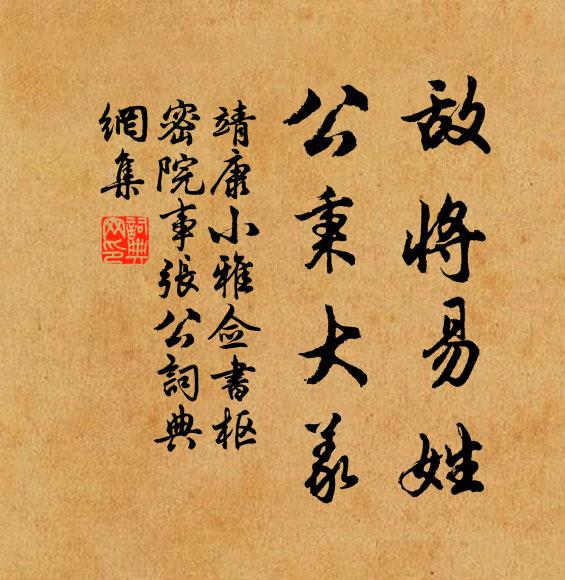 敌将易姓
公秉大义
靖康小雅佥书枢
密院事张公詞典
網集
詞典网印